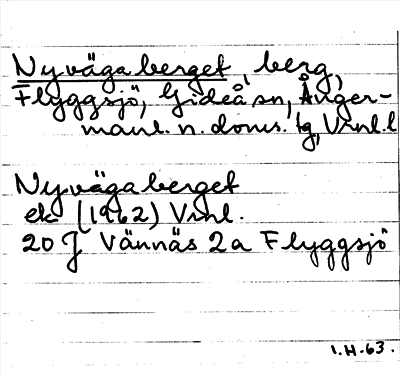 Nyvägaberget, berg,
Flyggsjö, Gideå sn, Ånger-
manl. n. doms. tg, Vnl. l
Nyvägaberget
ek (1962) Vnl.
20 J Vännäs 2a Flyggsjö
I.H-63.